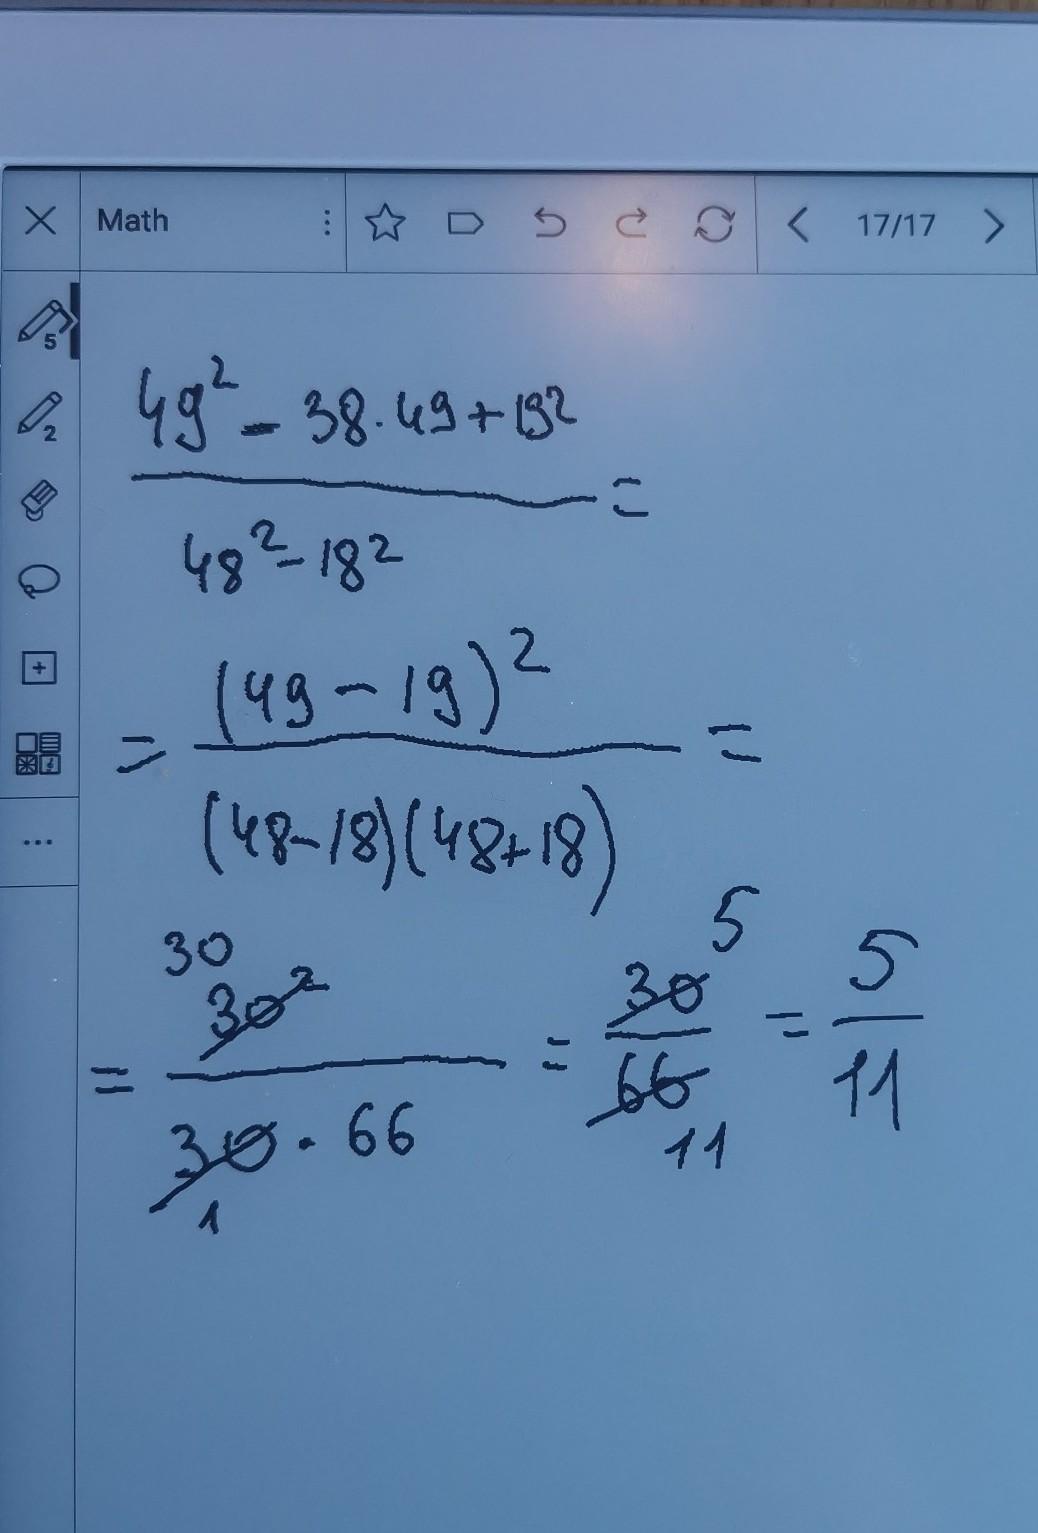 Math
17/17
5
2
49² - 38·49 + 19²
=
48² - 18²
(49 - 19)²
= =
(48-18)(48+18)
30 5
30² 30 5
= = =
30 · 66 66 11
1 11